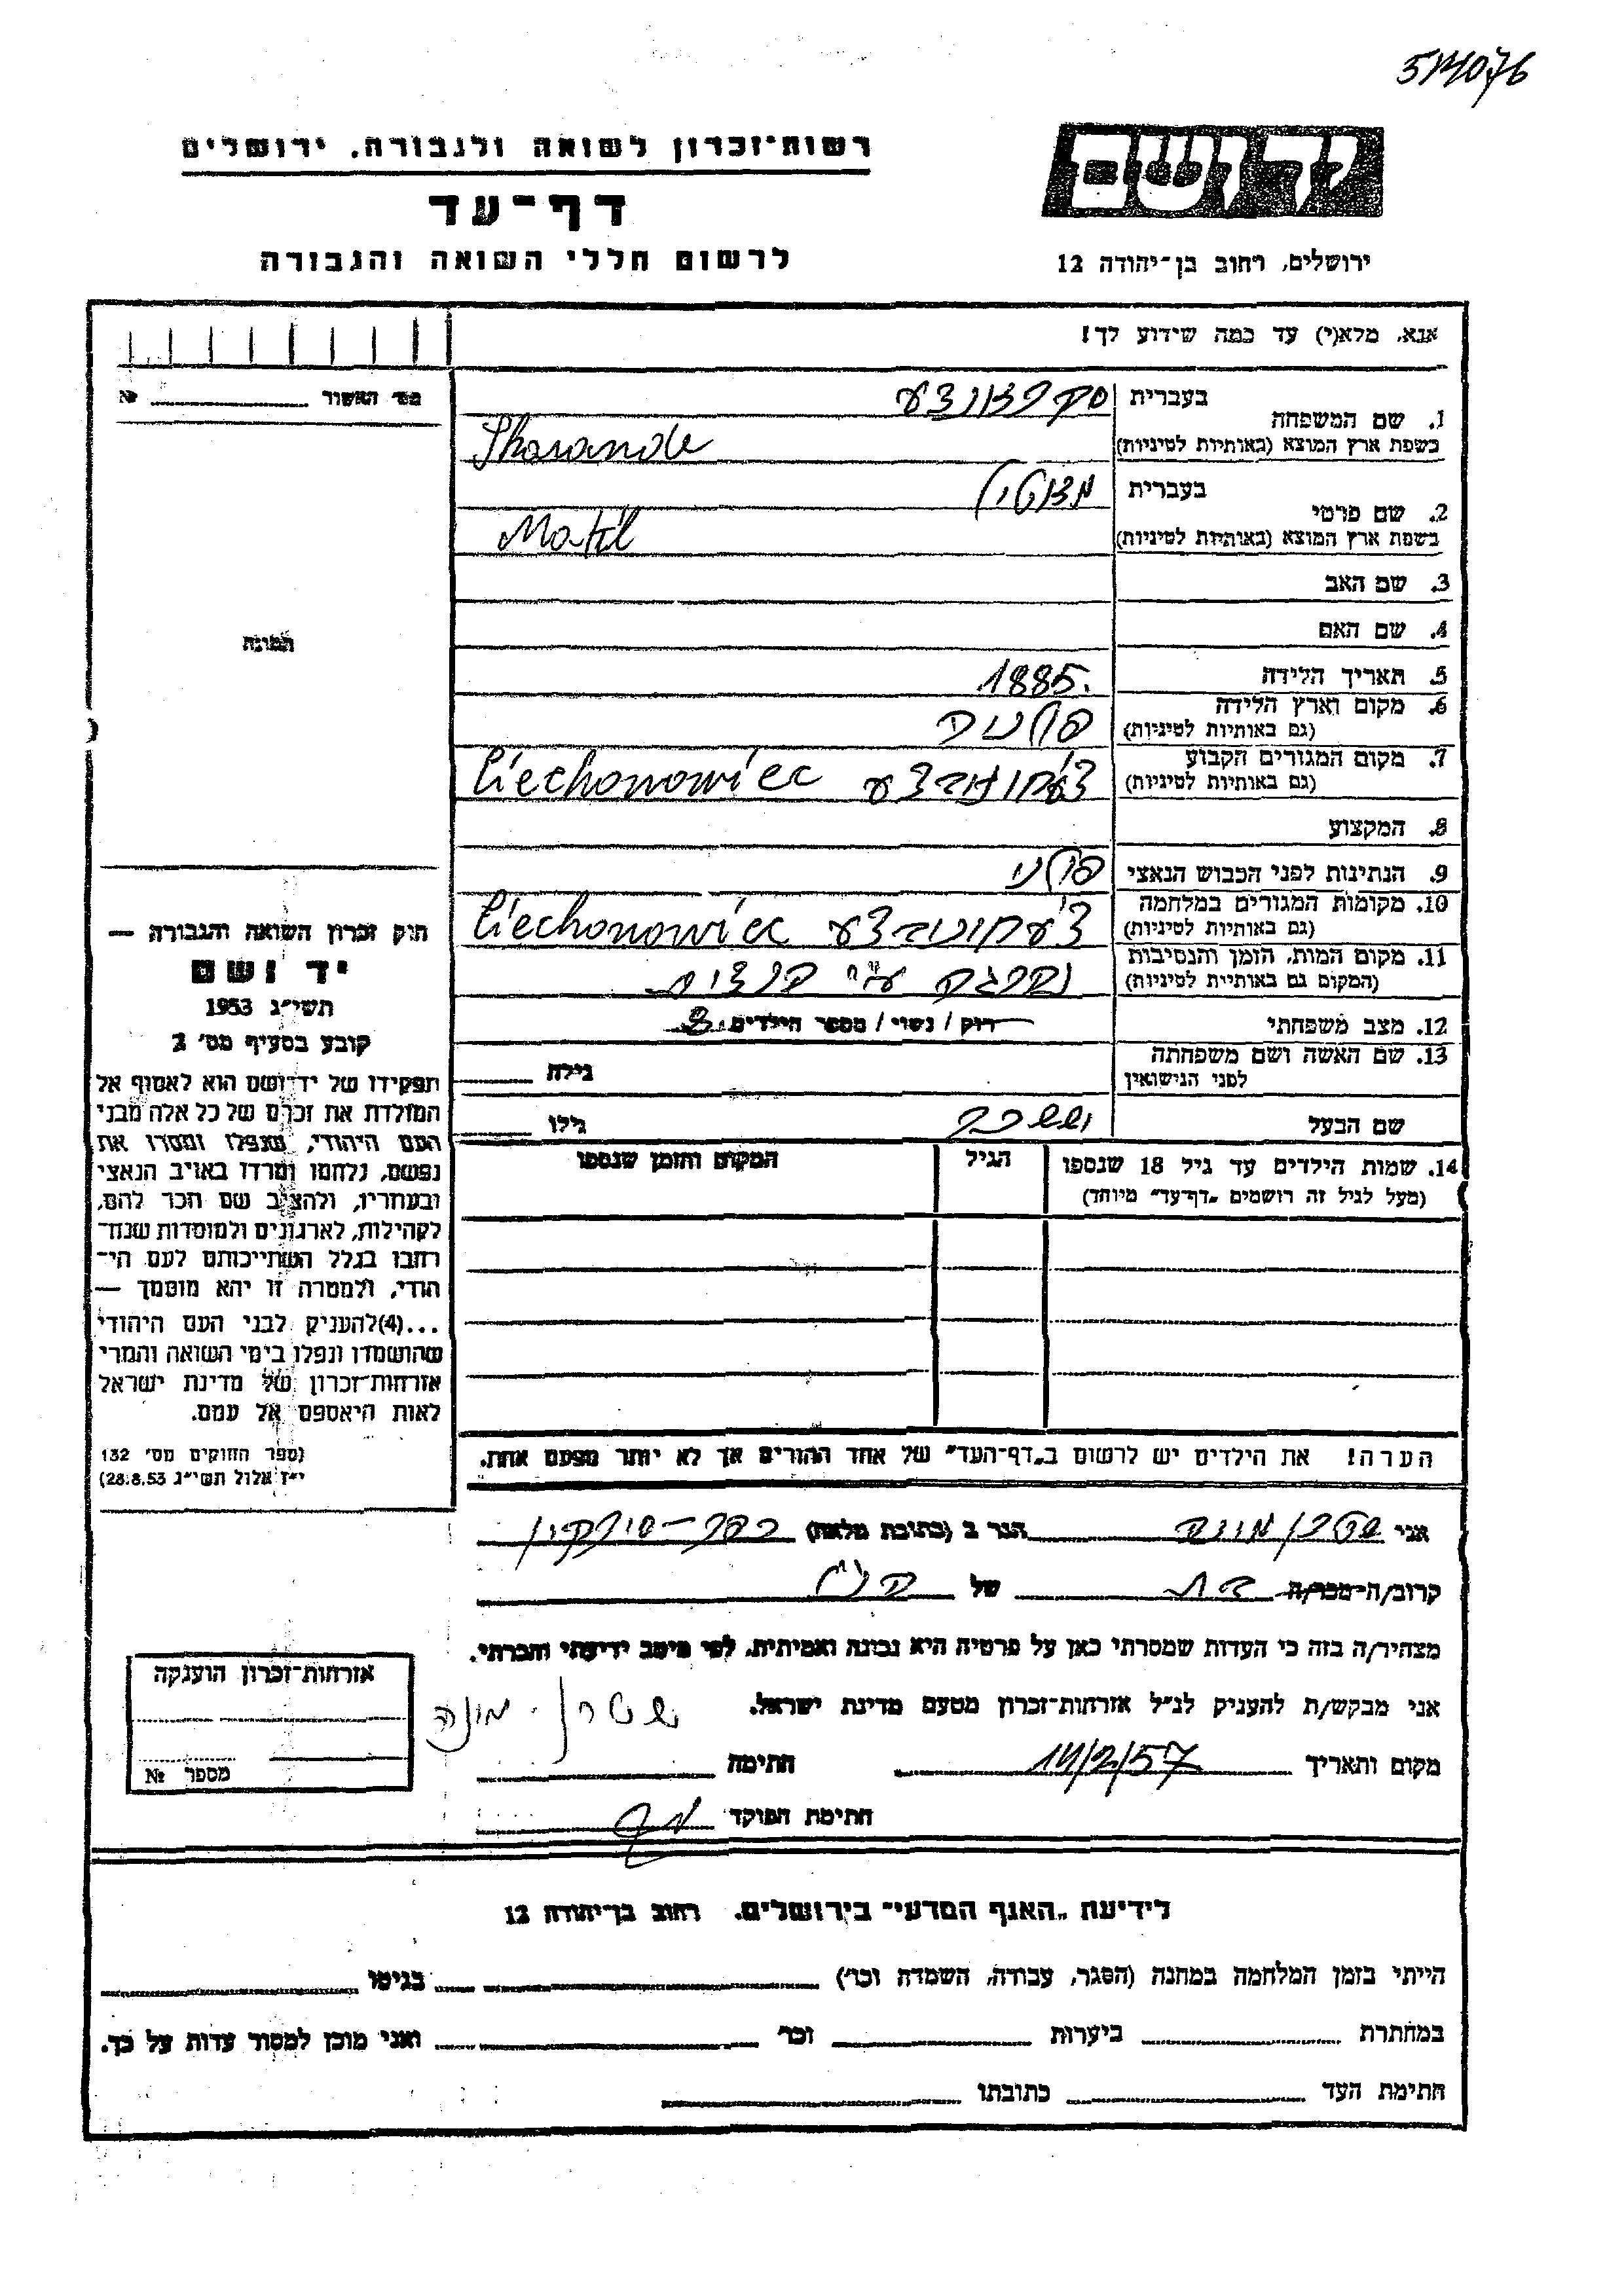 רשות־זכרון לשואה ולגבורה, ירושלים
דף־עד
לרשום חללי השואה והגבורה
יד ושם
ירושלים, רחוב בן־יהודה 12
אנא, מלא(י) עד כמה שידוע לך!
מס׳ האשור №
התמונה
1. שם המשפחה
בעברית
בשפת ארץ המוצא (באותיות לטיניות)
2. שם פרטי
בעברית
בשפת ארץ המוצא (באותיות לטיניות)
3. שם האב
4. שם האם
5. תאריך הלידה 1885.
6. מקום וארץ הלידה
(גם באותיות לטיניות)
7. מקום המגורים הקבוע Ciechonowiec
(גם באותיות לטיניות)
8. המקצוע
9. הנתינות לפני הכבוש הנאצי פולני
10. מקומות המגורים במלחמה Ciechonowiec
(גם באותיות לטיניות)
11. מקום המות, הזמן והנסיבות
(המקום גם באותיות לטיניות)
12. מצב משפחתי רוק / נשוי / מספר הילדים
13. שם האשה ושם משפחתה
לפני הנישואין
גילה
שם הבעל יששכר גילו
14. שמות הילדים עד גיל 18 שנספו הגיל המקום והזמן שנספו
(מעל לגיל זה רושמים „דף־עד״ מיוחד)
הערה! את הילדים יש לרשום ב„דף־העד״ של אחד ההורים אך לא יותר מפעם אחת.
חוק זכרון השואה והגבורה —
יד ושם
תשי״ג 1953
קובע בסעיף מס׳ 2
תפקידו של יד־ושם הוא לאסוף אל
המולדת את זכרם של כל אלה מבני
העם היהודי, שנפלו ומסרו את
נפשם, נלחמו ומרדו באויב הנאצי
ובעוזריו, ולהציב שם וזכר להם,
לקהילות, לארגונים ולמוסדות שנח־
רבו בגלל השתייכותם לעם הי־
הודי, ולמטרה זו יהא מוסמך —
...(4)להעניק לבני העם היהודי
שהושמדו ונפלו בימי השואה והמרי
אזרחות־זכרון של מדינת ישראל
לאות היאספם אל עמם.
(ספר החוקים מס׳ 132
י״ז אלול תשי״ג 28.8.53)
אני שטרן מונה הגר ב (כתובת מלאה) כפר־סירקין
קרוב/ה־מכר/ה בת של הנ״ל
מצהיר/ה בזה כי העדות שמסרתי כאן על פרטיה היא נכונה ואמיתית, לפי מיטב ידיעתי והכרתי.
אני מבקש/ת להעניק לנ״ל אזרחות־זכרון מטעם מדינת ישראל.
מקום ותאריך 14/2/57 חתימה שטרן מונה
חתימת הפוקד
אזרחות־זכרון הוענקה
מספר №
לידיעת „האגף המדעי״ בירושלים, רחוב בן־יהודה 12
הייתי בזמן המלחמה במחנה (הסגר, עבודה, השמדה וכו׳) בגיטו
במחתרת ביערות וכו׳ ואני מוכן למסור עדות על כך.
חתימת העד כתובתו